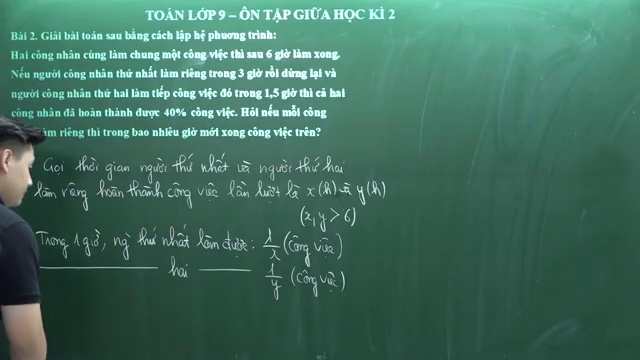 TOÁN LỚP 9 – ÔN TẬP GIỮA HỌC KÌ 2
Bài 2. Giải bài toán sau bằng cách lập hệ phương trình:
Hai công nhân cùng làm chung một công việc thì sau 6 giờ làm xong.
Nếu người công nhân thứ nhất làm riêng trong 3 giờ rồi dừng lại và
người công nhân thứ hai làm tiếp công việc đó trong 1,5 giờ thì cả hai
công nhân đã hoàn thành được 40% công việc. Hỏi nếu mỗi công
làm riêng thì trong bao nhiêu giờ mới xong công việc trên?
Gọi thời gian người thứ nhất và người thứ hai
làm riêng hoàn thành công việc lần lượt là x (h) và y (h)
(x, y > 6)
Trong 1 giờ, ng` thứ nhất làm được: 1/x (công việc)
hai 1/y (công việc)